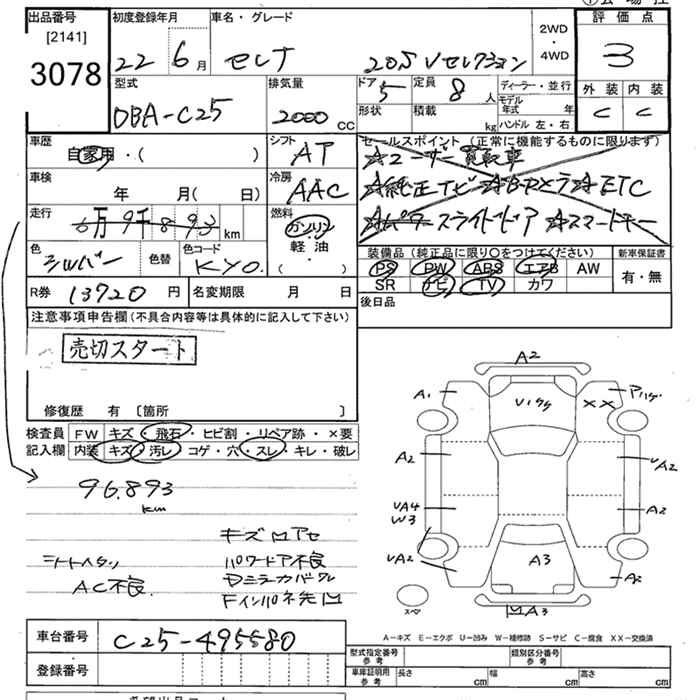 出品番号
[2141]
3078
初度登録年月
22年6月
車名・グレード
セレナ 20S Vセレクション
2WD
・
4WD
評価点
3
外装 内装
C C
型式
DBA-C25
排気量
2000 CC
ドア
5
形状
定員
8人
積載
kg
ディーラー・並行
モデル年式 年
ハンドル 左・右
車歴
自家用・( )
シフト
AT
車検
年 月( 日)
冷房
AAC
走行
km
燃料
ガソリン
軽油
( )
色
シルバー
色替
色コード
KY0
セールスポイント (正常に機能するものに限ります)
☆純正TV☆Bカメラ☆ETC
☆パワースライドドア ☆スマートキー
装備品 (純正品に限り○をつけてください)
PS PW ABS エアB AW
SR ナビ TV カワ
新車保証書
有・無
R券 13720円
名変期限 月 日
後日品
注意事項申告欄 (不具合内容等は具体的に記入して下さい)
売切スタート
修復歴 有 〔箇所 〕
検査員記入欄
FW キズ・飛石・ヒビ割・リペア跡・×要
内装 キズ・汚レ・コゲ・穴・スレ・キレ・破レ
96.893
km
キズ凹アセ
シートヘタリ
パワードア不良
AC不良
Dミラーカバワレ
Fインパネ先凹
A2
A1
Vバクケ
アハゲ
XX
A2
UA2
UA4
W3
A2
UA2
A3
A2
凹A3
スペア
A－キズ E－エクボ U－凹み W－補修跡 S－サビ C－腐食 XX－交換済
車台番号
C25-495580
登録番号
型式指定番号
参考
類別区分番号
参考
車庫証明用
参考
長さ cm
幅 cm
高さ cm